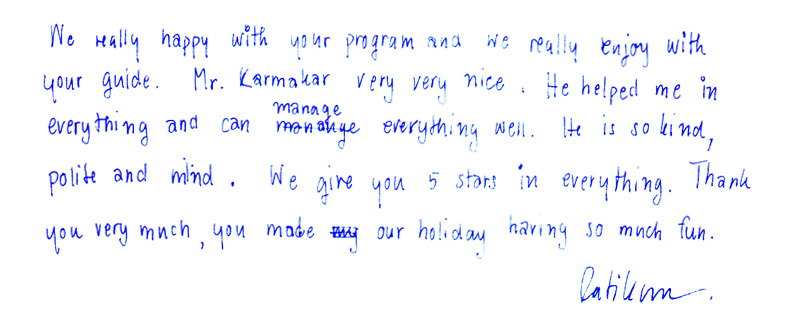 We really happy with your program and we really enjoy with
your guide. Mr. Karmakar very very nice. He helped me in
everything and can manage everything well. He is so kind,
polite and mind. We give you 5 stars in everything. Thank
you very much, you made our holiday having so much fun.